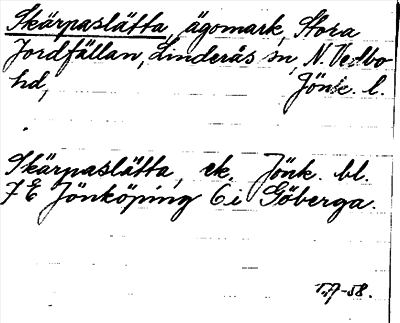 Skärpaslätta, ägomark, Stora
Jordfällan, Linderås sn, N. Vedbo
hd, Jönk. l.
Skärpaslätta, ek. Jönk. bl.
7 E Jönköping 6 i Göberga.
-58.